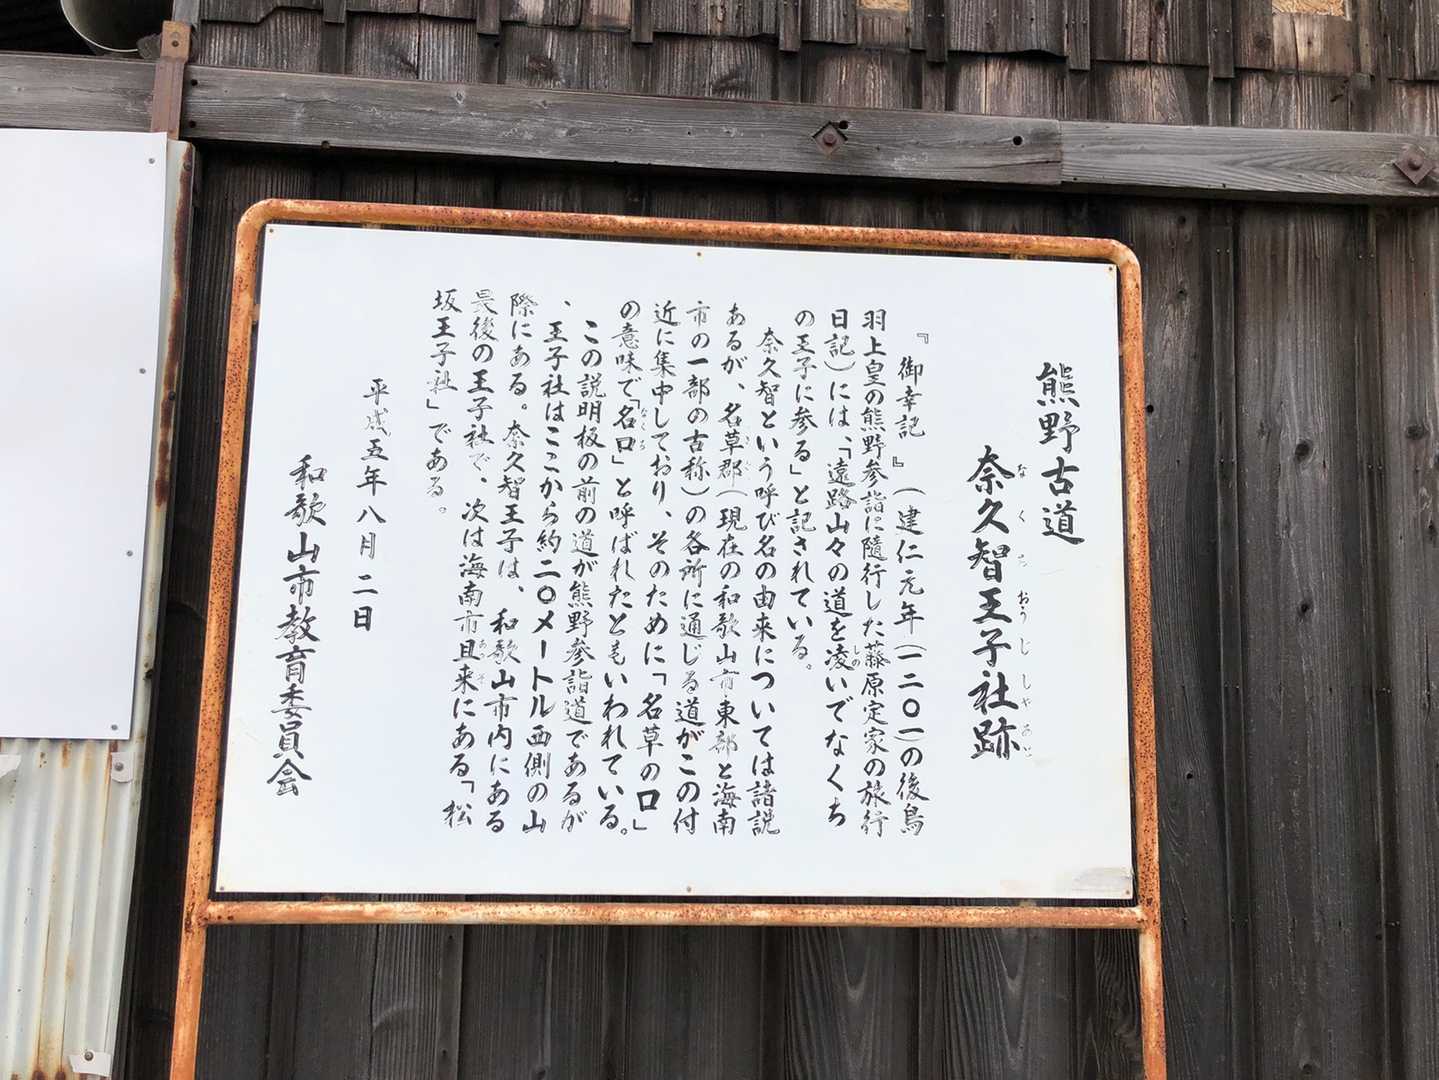 熊野古道
奈久智王子社跡
なくちおうじしゃあと
『御幸記』(建仁元年(一二〇一)の後鳥
羽上皇の熊野参詣に随行した藤原定家の旅行
日記)には、「遠路山々の道を凌いでなくち
しの
の王子に参る」と記されている。
奈久智という呼び名の由来については諸説
あるが、名草郡(現在の和歌山市東部と海南
市の一部の古称)の各所に通じる道がこの付
近に集中しており、そのために「名草の口」
の意味で「名口」と呼ばれたともいわれている。
なくち
この説明板の前の道が熊野参詣道であるが
、王子社はここから約二〇メートル西側の山
際にある。奈久智王子は、和歌山市内にある
最後の王子社で、次は海南市且来にある「松
あっそ
坂王子社」である。
平成五年八月二日
和歌山市教育委員会